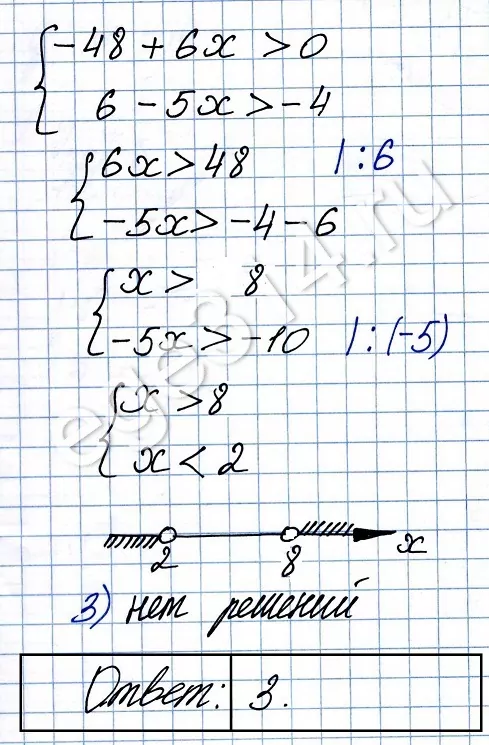 -48 + 6x > 0
6 - 5x > -4
6x > 48 | : 6
-5x > -4 - 6
x > 8
-5x > -10 | : (-5)
x > 8
x < 2
2 8 x
3) нет решений
Ответ: 3.
ege314.ru